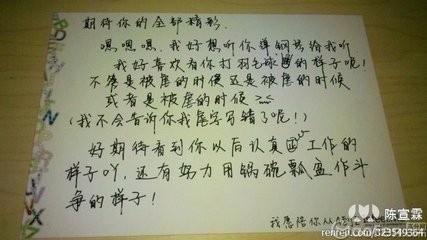 期待你的全部精彩.
嗯嗯嗯,我好想听你弹钢琴给我听
我好喜欢看你打羽毛球的样子呢!
不管是被虐的时候还是被虐的时候
或者是被虐的时候>
(我不会告诉你我虐字写错了呢!)
好期待看到你以后认真工作的
样子吖,还有努力用锅碗瓢盆作斗
争的样子!
我愿陪你从
陈宣霖
renren.com/323549364